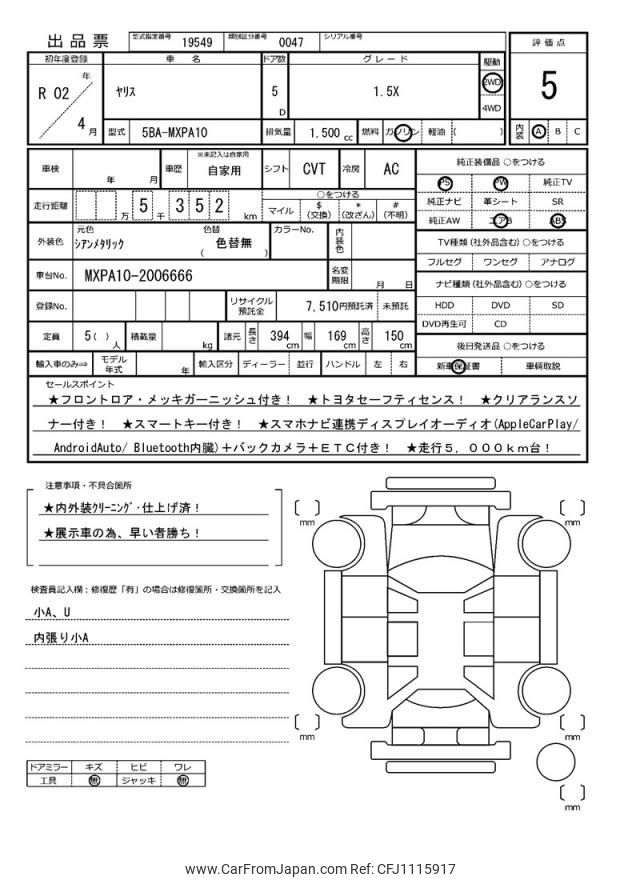 出品票 型式指定番号 19549 類別区分番号 0047 シリアル番号
評価点
初年度登録 車名 ドア数 グレード 駆動
R 02 年 4 月 ヤリス 5 D 1.5X 2WD 4WD
5
型式 5BA-MXPA10 排気量 1,500 cc 燃料 ガソリン 軽油 ( ) 内装 A B C
車検 年 月 車歴 ※未記入は自家用 自家用 シフト CVT 冷房 AC
走行距離 万 5 千 3 5 2 km ○をつける
マイル $(交換) *(改ざん) #(不明)
外装色 元色 シアンメタリック 色替 色替無 ( ) カラーNo. 内装色
車台No. MXPA10-2006666 名変期限 月 日
登録No. リサイクル預託金 7,510円預託済 未預託
定員 5( )人 積載量 kg 諸元 長さ 394 cm 幅 169 cm 高さ 150 cm
輸入車のみ⇒ モデル年式 年 輸入区分 ディーラー 並行 ハンドル 左 右
純正装備品 ○をつける
PS PW 純正TV
純正ナビ 革シート SR
純正AW エアB ABS
TV種類(社外品含む)○をつける
フルセグ ワンセグ アナログ
ナビ種類(社外品含む)○をつける
HDD DVD SD
DVD再生可 CD
後日発送品 ○をつける
新車保証書 車輌取説
セールスポイント
★フロントロア・メッキガーニッシュ付き! ★トヨタセーフティセンス! ★クリアランスソ
ナー付き! ★スマートキー付き! ★スマホナビ連携ディスプレイオーディオ(AppleCarPlay/
AndroidAuto/ Bluetooth内臓)+バックカメラ+ETC付き! ★走行5,000km台!
注意事項・不具合箇所
★内外装クリーニング・仕上げ済!
★展示車の為、早い者勝ち!
検査員記入欄:修復歴「有」の場合は修復箇所・交換箇所を記入
小A、U
内張り小A
ドアミラー キズ ヒビ ワレ
工具 無 ジャッキ 無
mm
mm
mm
mm
mm
www.CarFromJapan.com Ref: CFJ1115917